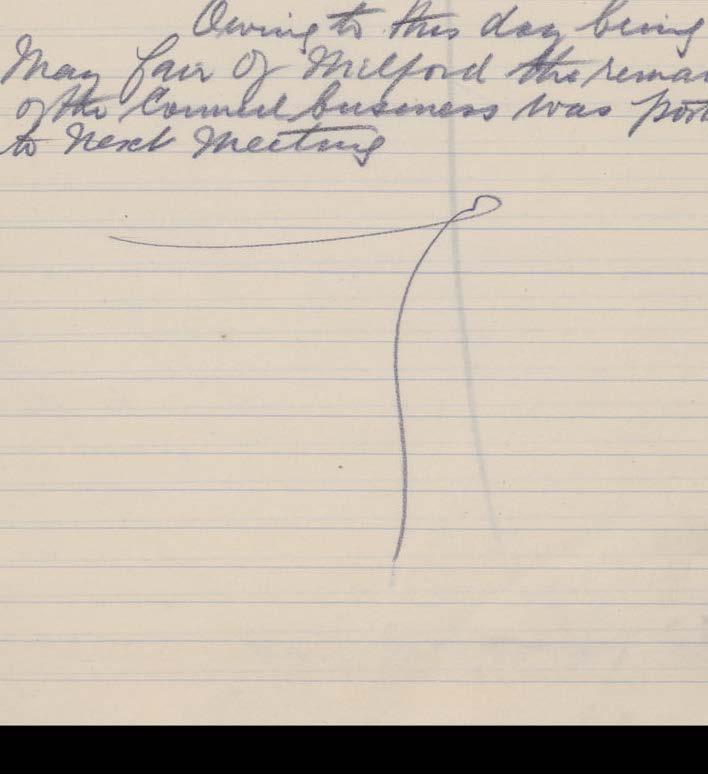 Owing to this day being
May fair of Milford the remai
of the Council business was post
to next Meeting